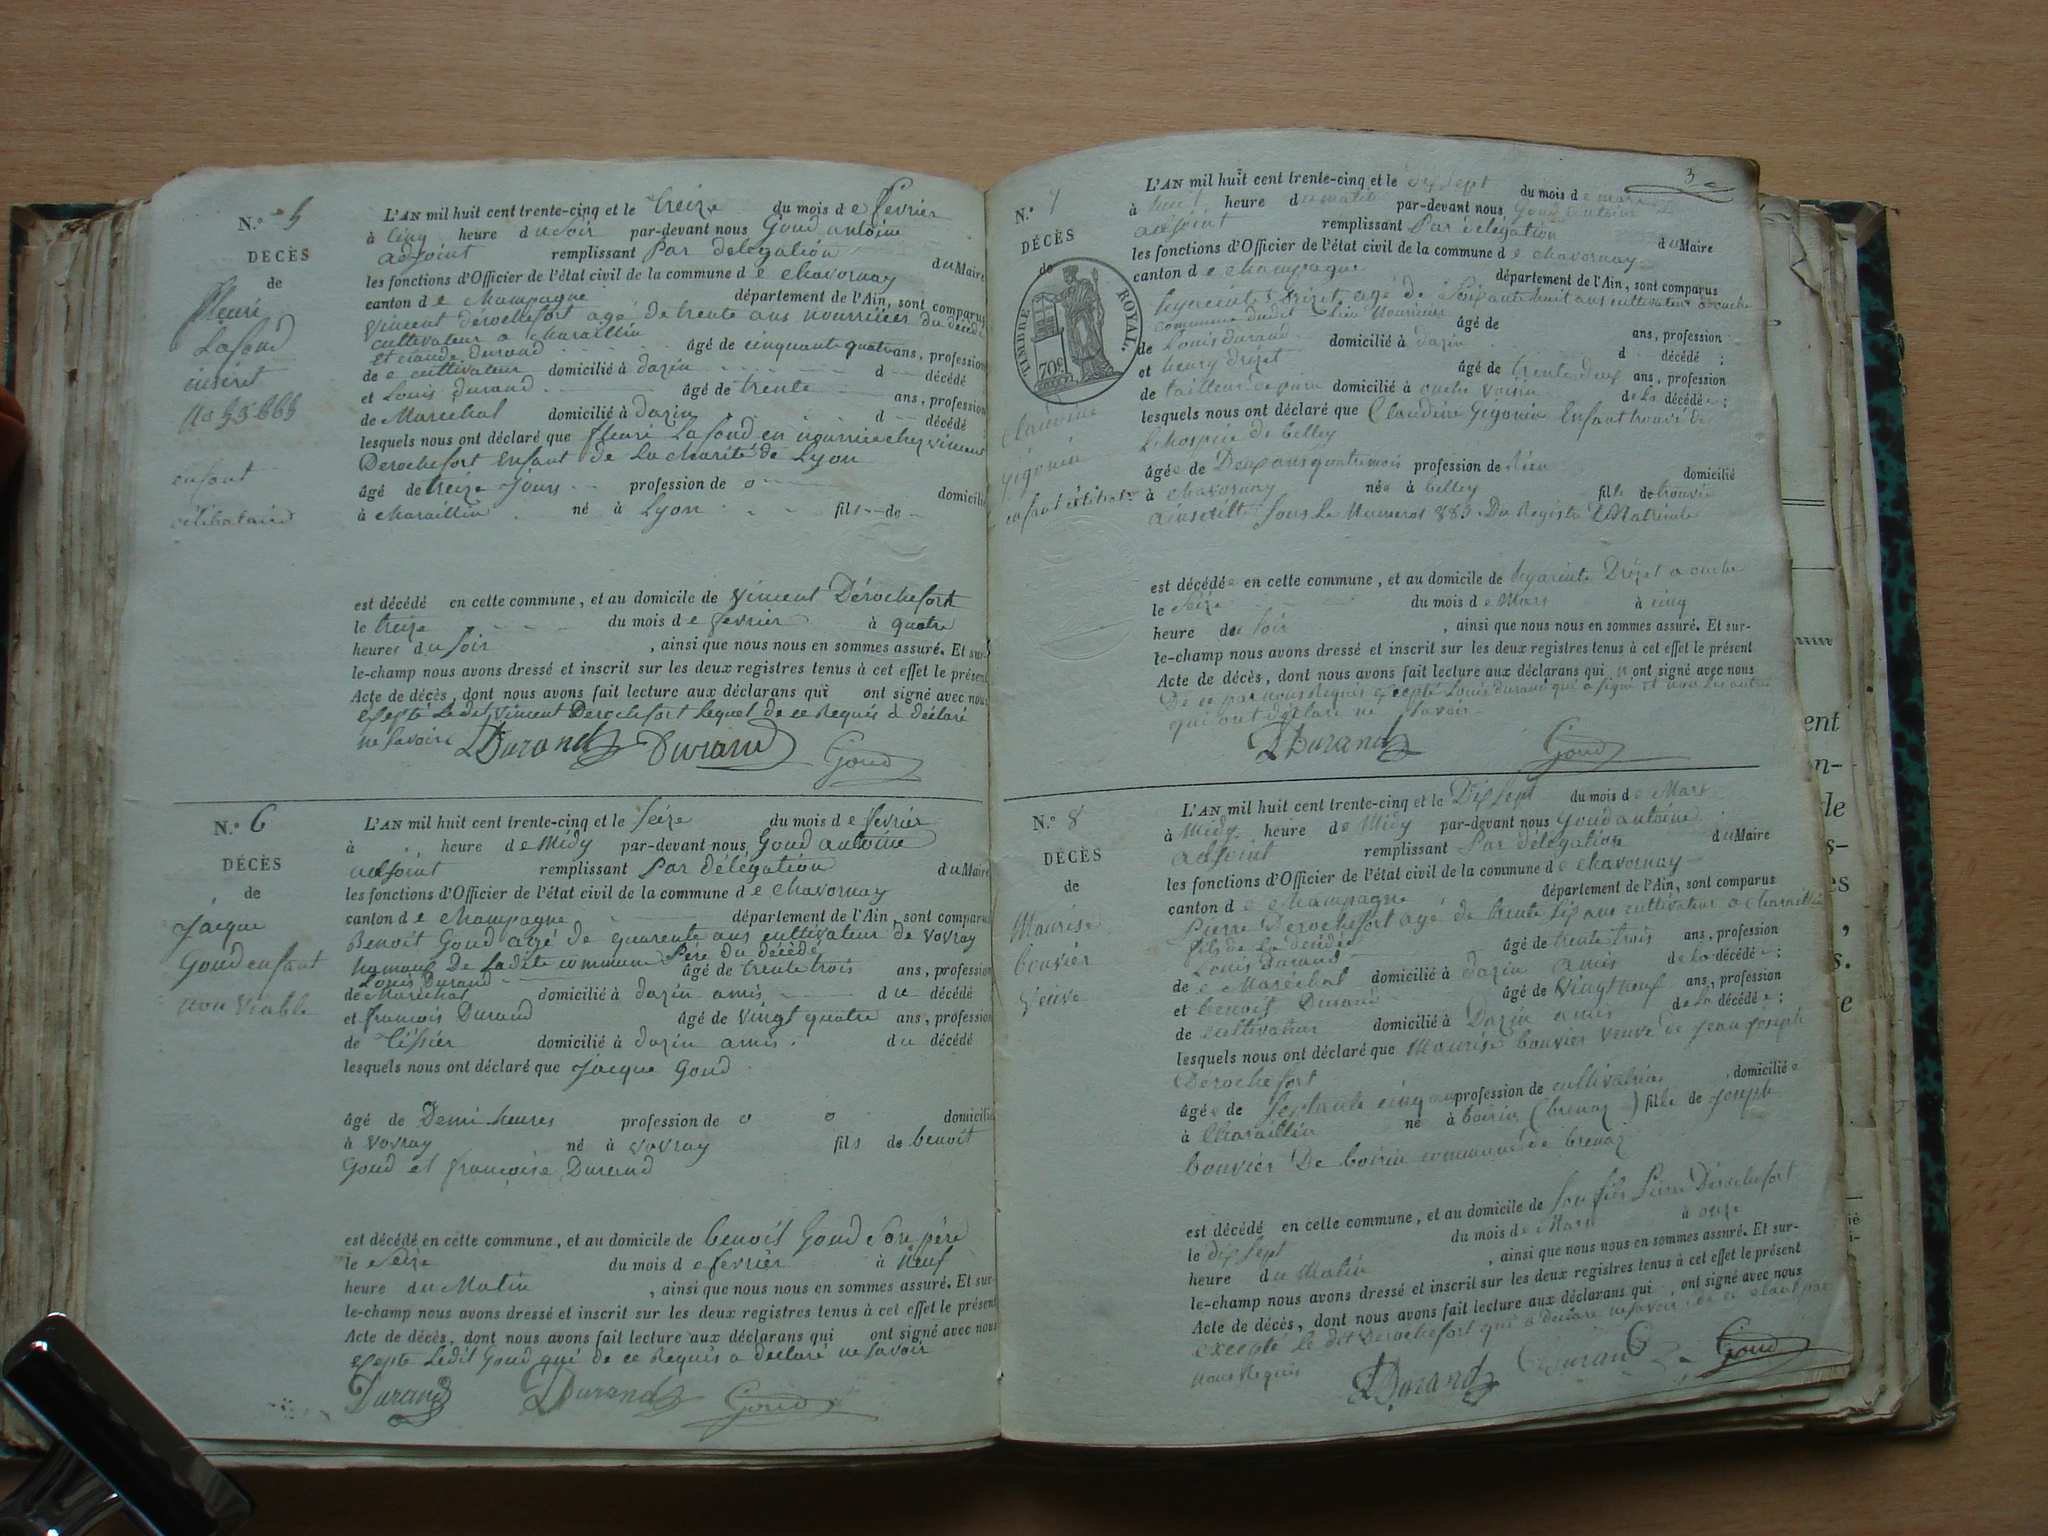 N.° 5
DÉCÈS
de
fleuri
Lafond
inscrit
No 55865
enfant
célibataire
L'AN mil huit cent trente-cinq et le treize du mois de fevrier
à cinq heure du soir par-devant nous Goud antoine
adjoint remplissant Par délégation du Maire
les fonctions d'Officier de l'état civil de la commune de chavornay
canton de Champagne département de l'Ain, sont comparus
vincent dérochefort agé de trente ans nourricier du décédé
cultivateur a charaillin
et claude durand âgé de cinquante quatre ans, profession
de cultivateur domicilié à dazin d décédé
et Louis durand âgé de trente ans, profession
de Marechal domicilié à dazin d décédé
lesquels nous ont déclaré que fleuri Lafond en nourrice chez vincent
Derochefort Enfant de La charité de Lyon
âgé de treize Jours profession de o domicilié
à charaillin né à Lyon fils de
est décédé en cette commune, et au domicile de vincent Dérochefort
le treize du mois de fevrier à quatre
heures du soir , ainsi que nous nous en sommes assuré. Et sur-
le-champ nous avons dressé et inscrit sur les deux registres tenus à cet effet le présent
Acte de décès, dont nous avons fait lecture aux déclarans qui ont signé avec nous
exepté Ledit vincent Derochefort lequel de ce Requis a déclaré
ne savoir LDurand Durand Goud
N.° 6
DÉCÈS
de
Jacque
Goud enfant
non viable
L'AN mil huit cent trente-cinq et le seize du mois de fevrier
à heure de Midy par-devant nous Goud antoine
adjoint remplissant Par délégation du Maire
les fonctions d'Officier de l'état civil de la commune de chavornay
canton de Champagne département de l'Ain, sont comparus
Benoit Goud agé de quarente ans cultivateur de vovray
hamaux De ladite commune Pére du décédé
Louis Durand âgé de trente trois ans, profession
de Maréchal domicilié à dazin amis du décédé
et françois Durand âgé de vingt quatre ans, profession
de tissier domicilié à dazin amis du décédé
lesquels nous ont déclaré que Jacque Goud
âgé de Demi heures profession de o o domicilié
à vovray né à vovray fils de benoit
Goud et françoise Durand
est décédé en cette commune, et au domicile de benoit Goud Son père
le seize du mois de fevrier à neuf
heure du Matin , ainsi que nous nous en sommes assuré. Et sur-
le-champ nous avons dressé et inscrit sur les deux registres tenus à cet effet le présent
Acte de décès, dont nous avons fait lecture aux déclarans qui ont signé avec nous
exepte Ledit Goud qui de ce Requis a declaré ne savoir
Durand LDurand Goud
3
N.° 7
DÉCÈS
de
TIMBRE ROYAL.
70c
claudine
gigonin
enfant célibat
L'AN mil huit cent trente-cinq et le Dix sept du mois de mars
à huit heure du matin par-devant nous Goud antoine
adjoint remplissant Par délégation du Maire
les fonctions d'Officier de l'état civil de la commune de chavornay
canton de Champagne département de l'Ain, sont comparus
hyacinte Drizet agé de Soixante huit ans cultivateur a ouche
commune dudit Lieu Nourricier
Louis durand âgé de ans, profession
de domicilié à dazin d décédé ;
et henry drizet âgé de trente deux ans, profession
de tailleur domicilié à ouche voisin de La décédée ;
lesquels nous ont déclaré que Claudine Gigonin Enfant trouvé de
L'hospice de belley
âgée de Deux ans quatre mois profession de Rien domicilié
à chavornay née à belley fille de trouvé
Sous Le Numeros 883 Du Registre Matricule
est décédée en cette commune, et au domicile de hyacinte Drizet a ouche
le seize du mois de Mars à cinq
heure du soir , ainsi que nous nous en sommes assuré. Et sur-
le-champ nous avons dressé et inscrit sur les deux registres tenus à cet effet le présent
Acte de décès, dont nous avons fait lecture aux déclarans qui n ont signé avec nous
De ce par nous Requis exepté Louis durand qui a signé et non les autres
qui ont déclaré ne savoir
LDurand Goud
N.° 8
DÉCÈS
de
Maurise
bouvier
veuve
L'AN mil huit cent trente-cinq et le Dix sept du mois de Mars
à Midy heure de Midy par-devant nous Goud antoine
adjoint remplissant Par délégation du Maire
les fonctions d'Officier de l'état civil de la commune de chavornay
canton de Champagne département de l'Ain, sont comparus
Pierre Derochefort agé de trente six ans cultivateur a charaillin
fils de La décédé
Louis Durand âgé de trente trois ans, profession
de Maréchal domicilié à dazin amis de La décédée ;
et benoit Durand âgé de vingt neuf ans, profession
de cultivateur domicilié à Dazin amis de La décédée ;
lesquels nous ont déclaré que Maurise bouvier veuve de Jean Joseph
Derochefort
âgée de Septante cinq ans profession de cultivatrice domiciliée
à Charaillin né à boirin (brenaz) fille de Joseph
bouvier De boirin commune de brenaz
est décédé en cette commune, et au domicile de son fils Pierre Dérochefort
le dix sept du mois de Mars à onze
heure du Matin , ainsi que nous nous en sommes assuré. Et sur-
le-champ nous avons dressé et inscrit sur les deux registres tenus à cet effet le présent
Acte de décès, dont nous avons fait lecture aux déclarans qui ont signé avec nous
excepté le dit Derochefort qui a déclaré ne savoir de ce etant par
nous Requis
LDurand Durand Goud